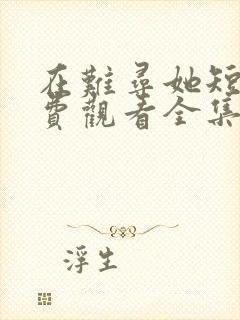 在難尋她短
費觀看全集
浮生